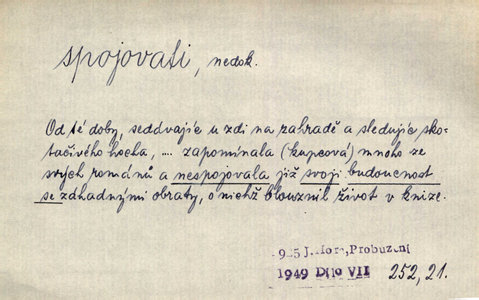 spojovati, nedok.
Od té doby, sedávajíc u zdi na zahradě a sledujíc sko-
tačivého hocha, .... zapomínala (kupcová) mnoho ze
svých románů a nespojovala již svoji budoucnost
se záhadnými obraty, o nichž blouznil život v knize.
1925 J.Hora, Probuzení
1949 Dílo VII 252, 21.